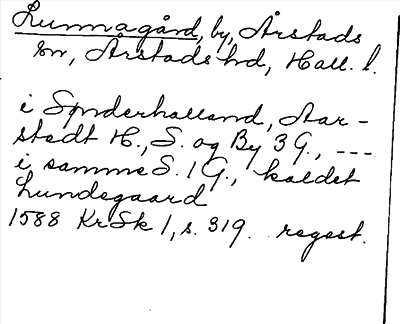 Lunnagård, by, Årstads
sn, Årstads hd, Hall. l.
i Sønderhalland, Aar-
stedt H., S. og By 3 G., ---
i samme S. 1 G., kaldet
Lundegaard
1588 KrSk 1, s. 319. regest.